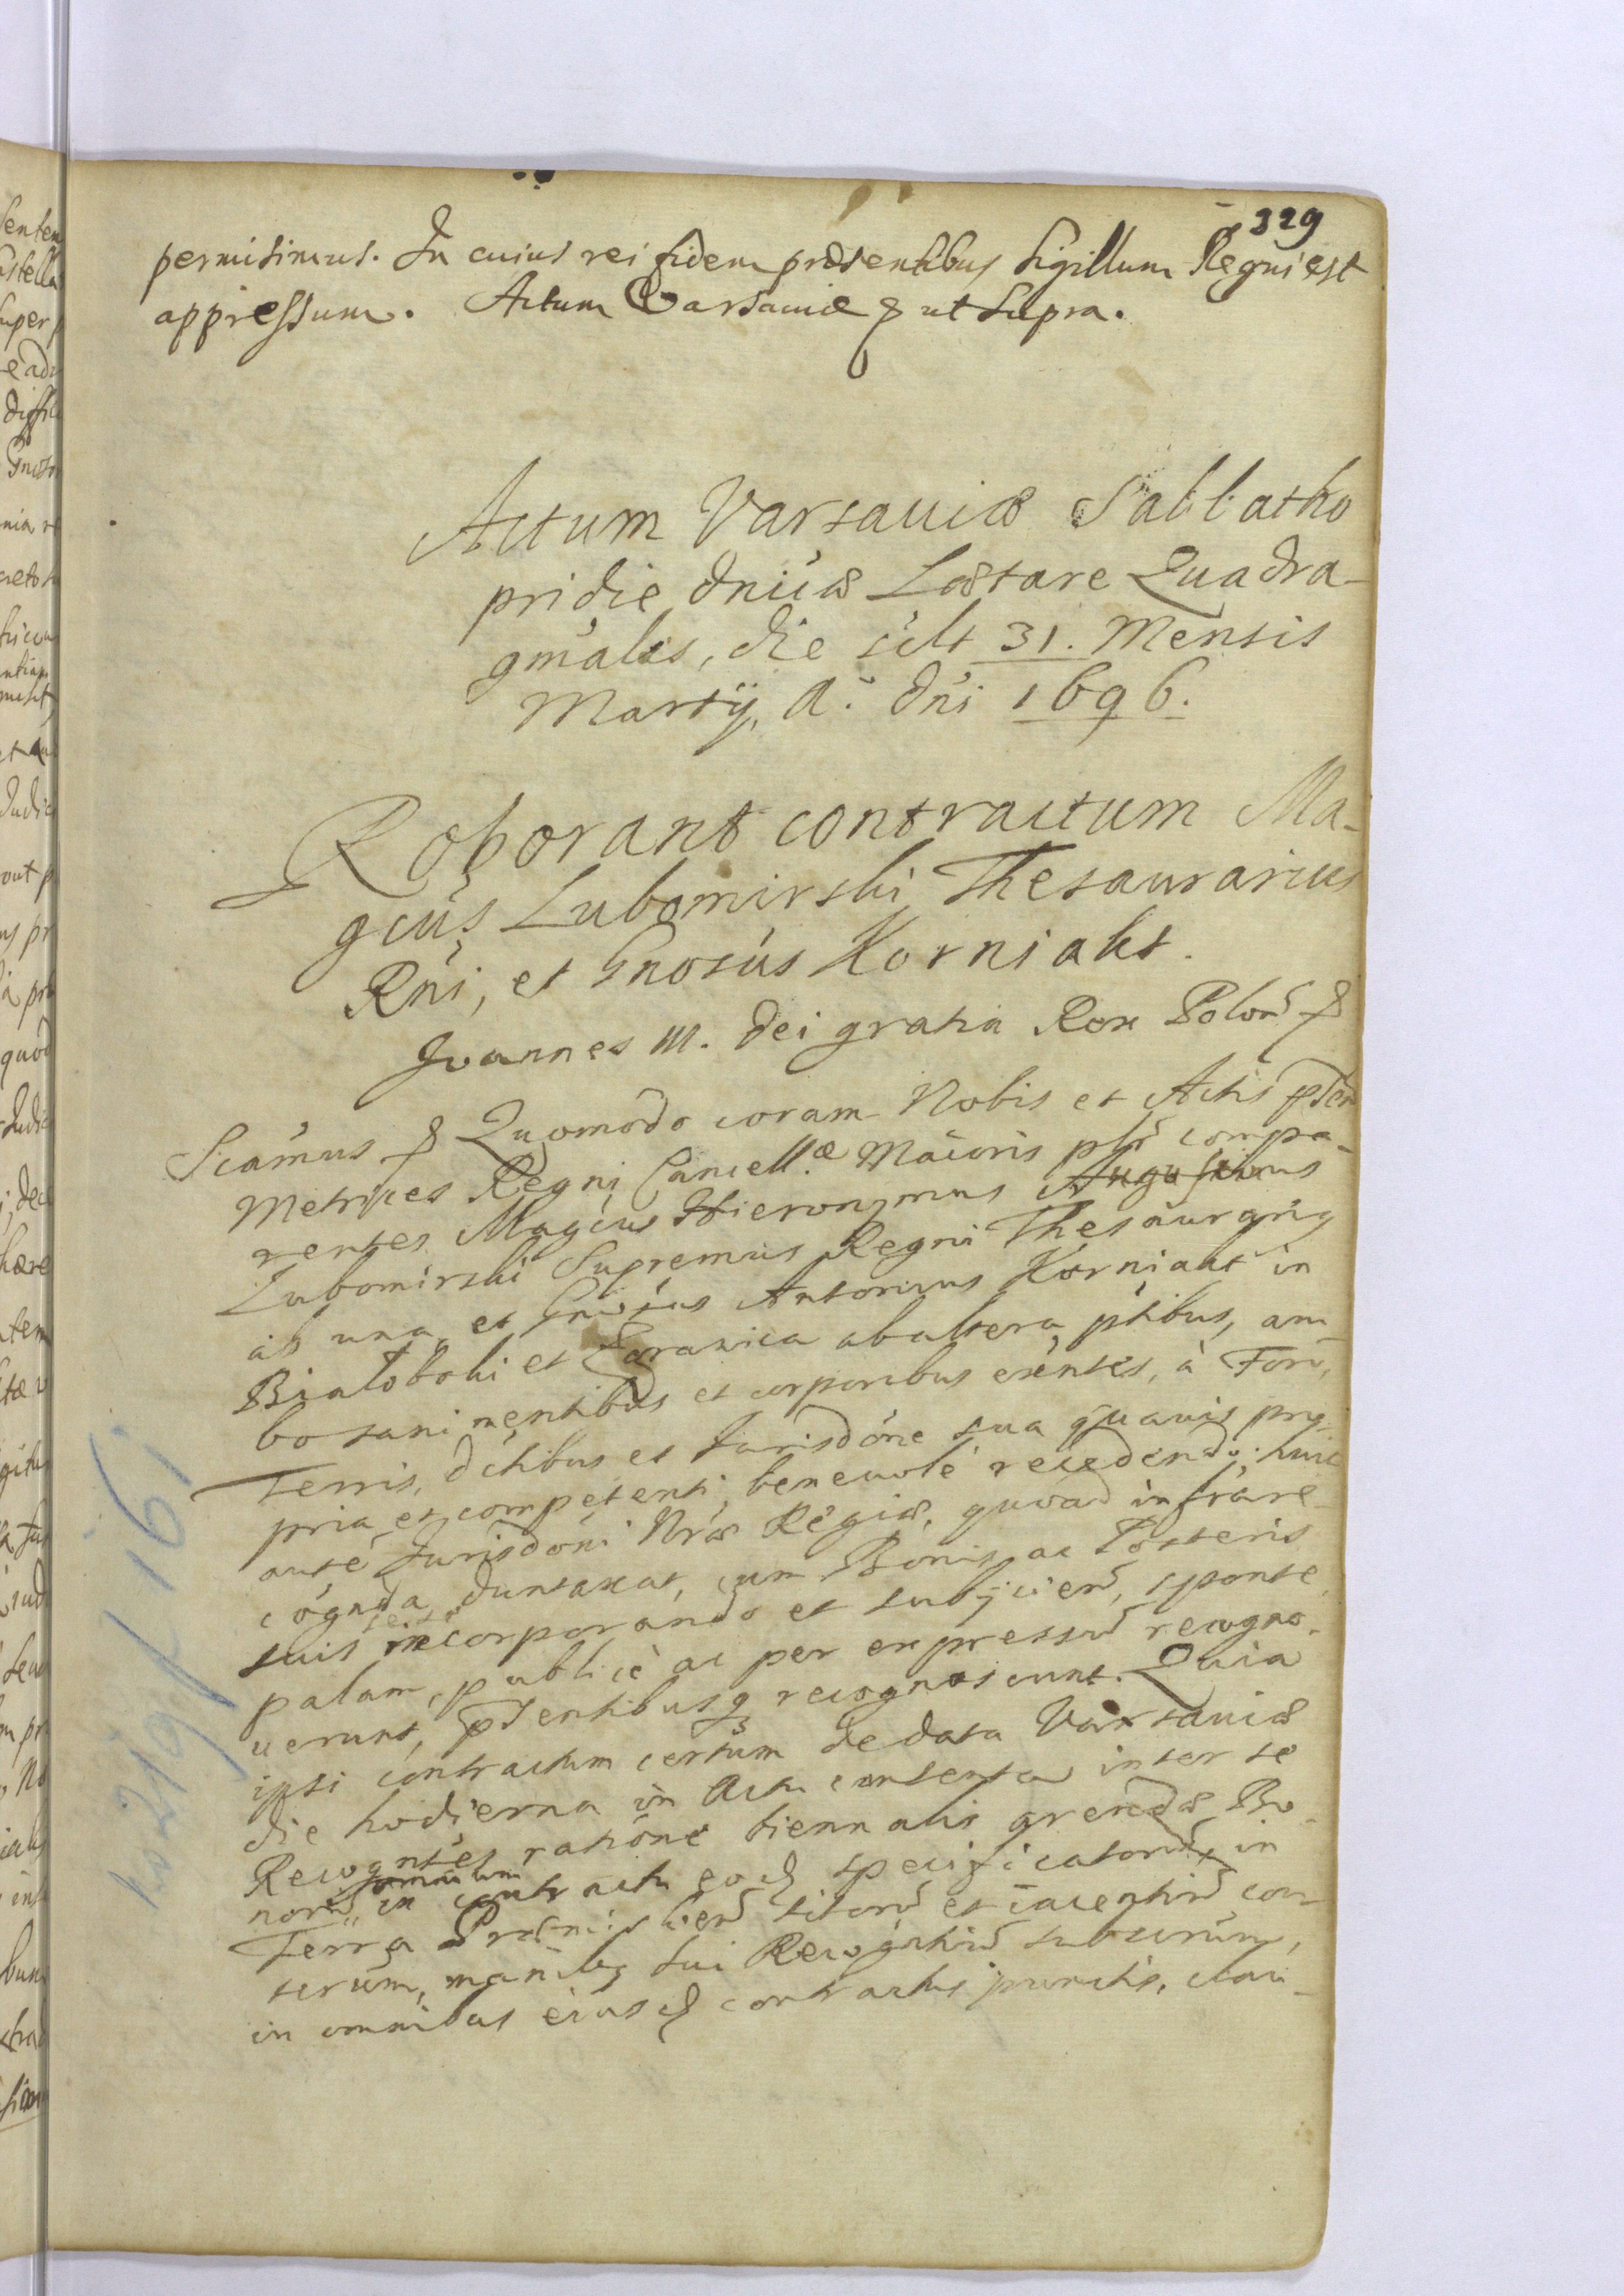 329
permisimus. In cuius rei fidem præsentibus Sigillum Regni est
appressum. Actum Varsaviæ & ut supra.
Actum Varsaviæ Sabbatho
pridie dnicæ Lætare Quadra-
gmalis, die ult 31. Mensis
Martij, A. dni 1696.
Roborant contractum Ma-
gcus Lubomirski Thesaurarius
Rni, et Gnosus Korniakt.
Joannes III. Dei gratia Rex Polon &
Scamus & Quomodo coram Nobis et Actis pten
Metrices Regni Cancellæ Maioris plr compa-
rentes Magcus Hieronymus Augustinus
Lubomirski Supremus Regni Thesaurarig
ab una, et Gnosus Antonius Korniakt in
Białoboki et ab altera ptibus, am-
bo sani mentibus et corporibus exentes, à Foris,
Terris, dctibus et Jurisdone sua quavis prop-
pria et competenti, benevole recedendo, huic
aute Jurisdoni Nræ Regiæ, quoad infrare-
cognda duntaxat, cum Bonis, ac Posteris
suis sese incorporando et subijciend, sponte,
palam, publicè ac per expressum recogno-
uerunt, ptentibusq recognoscunt. Quia
ipsi contractum certum de data Varsaviæ
die hodierna in Actu contenta inter se
Recogntes ratione biennalis arendæ Bo-
nord omnium in contractu eod specificatord, in
Terra Præmislien sitord et iacentiud con-
tectum, manibq sui Recogntiud subscrum,
in omnibus eiusd contractus punctis, clau-
No 219 f. 161.